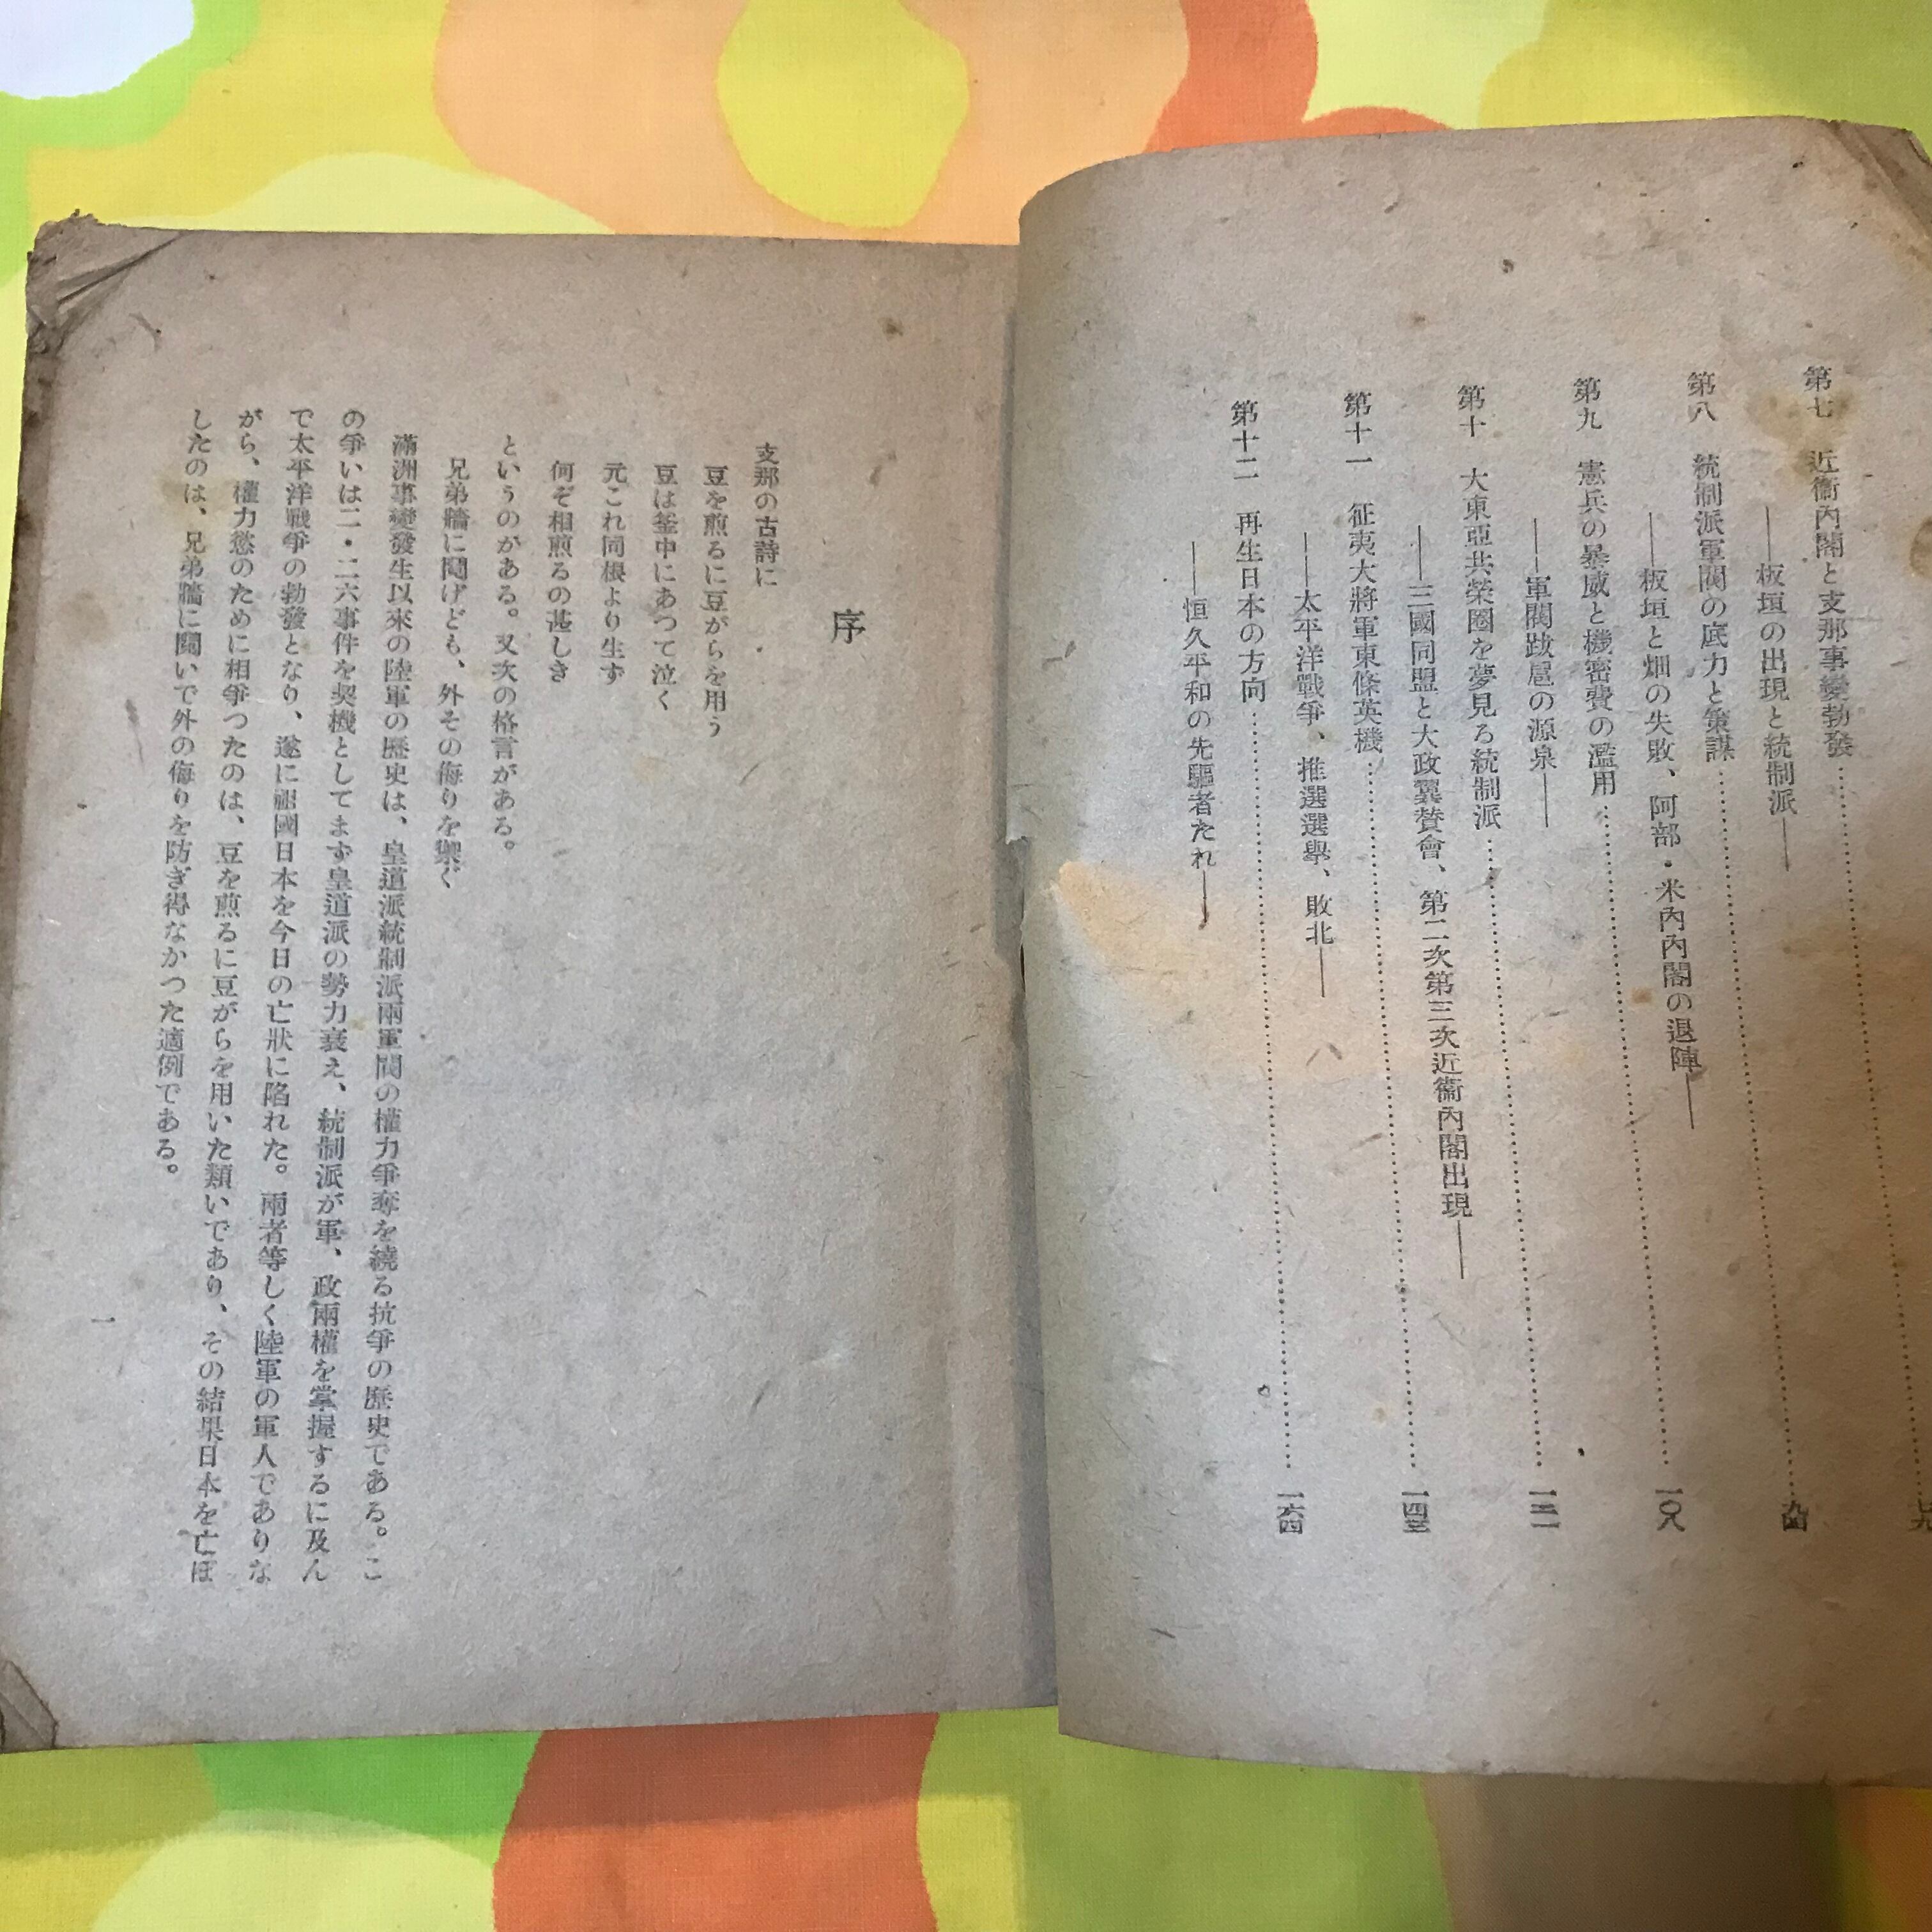 第七　近衞內閣と支那事變勃發
――板垣の出現と統制派――
第八　統制派軍閥の底力と策謀……九四
――板垣と畑の失敗、阿部・米內內閣の退陣――
第九　憲兵の暴威と機密費の濫用……一〇八
――軍閥跋扈の源泉――
第十　大東亞共榮圈を夢見る統制派……一三一
――三國同盟と大政翼賛會、第二次第三次近衞內閣出現――
第十一　征夷大將軍東條英機……一四三
――太平洋戰爭、推選選擧、敗北――
第十二　再生日本の方向……一六四
――恒久平和の先驅者たれ――
序
支那の古詩に
豆を煎るに豆がらを用う
豆は釜中にあつて泣く
元これ同根より生ず
何ぞ相煎るの甚しき
というのがある。又次の格言がある。
兄弟牆に鬩げども、外その侮りを禦ぐ
滿洲事變發生以來の陸軍の歷史は、皇道派統制派兩軍閥の權力爭奪を繞る抗爭の歷史である。こ
の爭いは二・二六事件を契機としてまず皇道派の勢力衰え、統制派が軍、政兩權を掌握するに及ん
で太平洋戰爭の勃發となり、遂に祖國日本を今日の亡狀に陷れた。兩者等しく陸軍の軍人でありな
がら、權力慾のために相爭つたのは、豆を煎るに豆がらを用いた類いであり、その結果日本を亡ぼ
したのは、兄弟牆に鬩いで外の侮りを防ぎ得なかつた適例である。
一